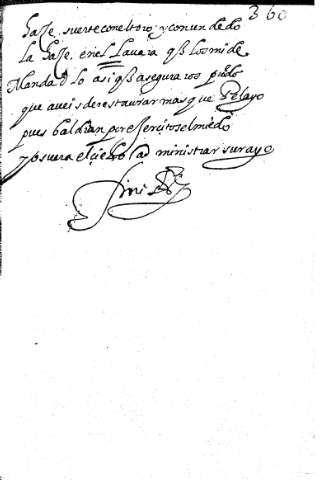 360
hasse, suerte con el toro, y con un dedo
la hasse, en el Lauara qe los mide
Manda d lo asi qe asegura ros puedo
que aueis de restaurar mas que Pelayo
pues baldran por exercitos el miedo
y os uera el çielo ad ministrar su rayo
finis